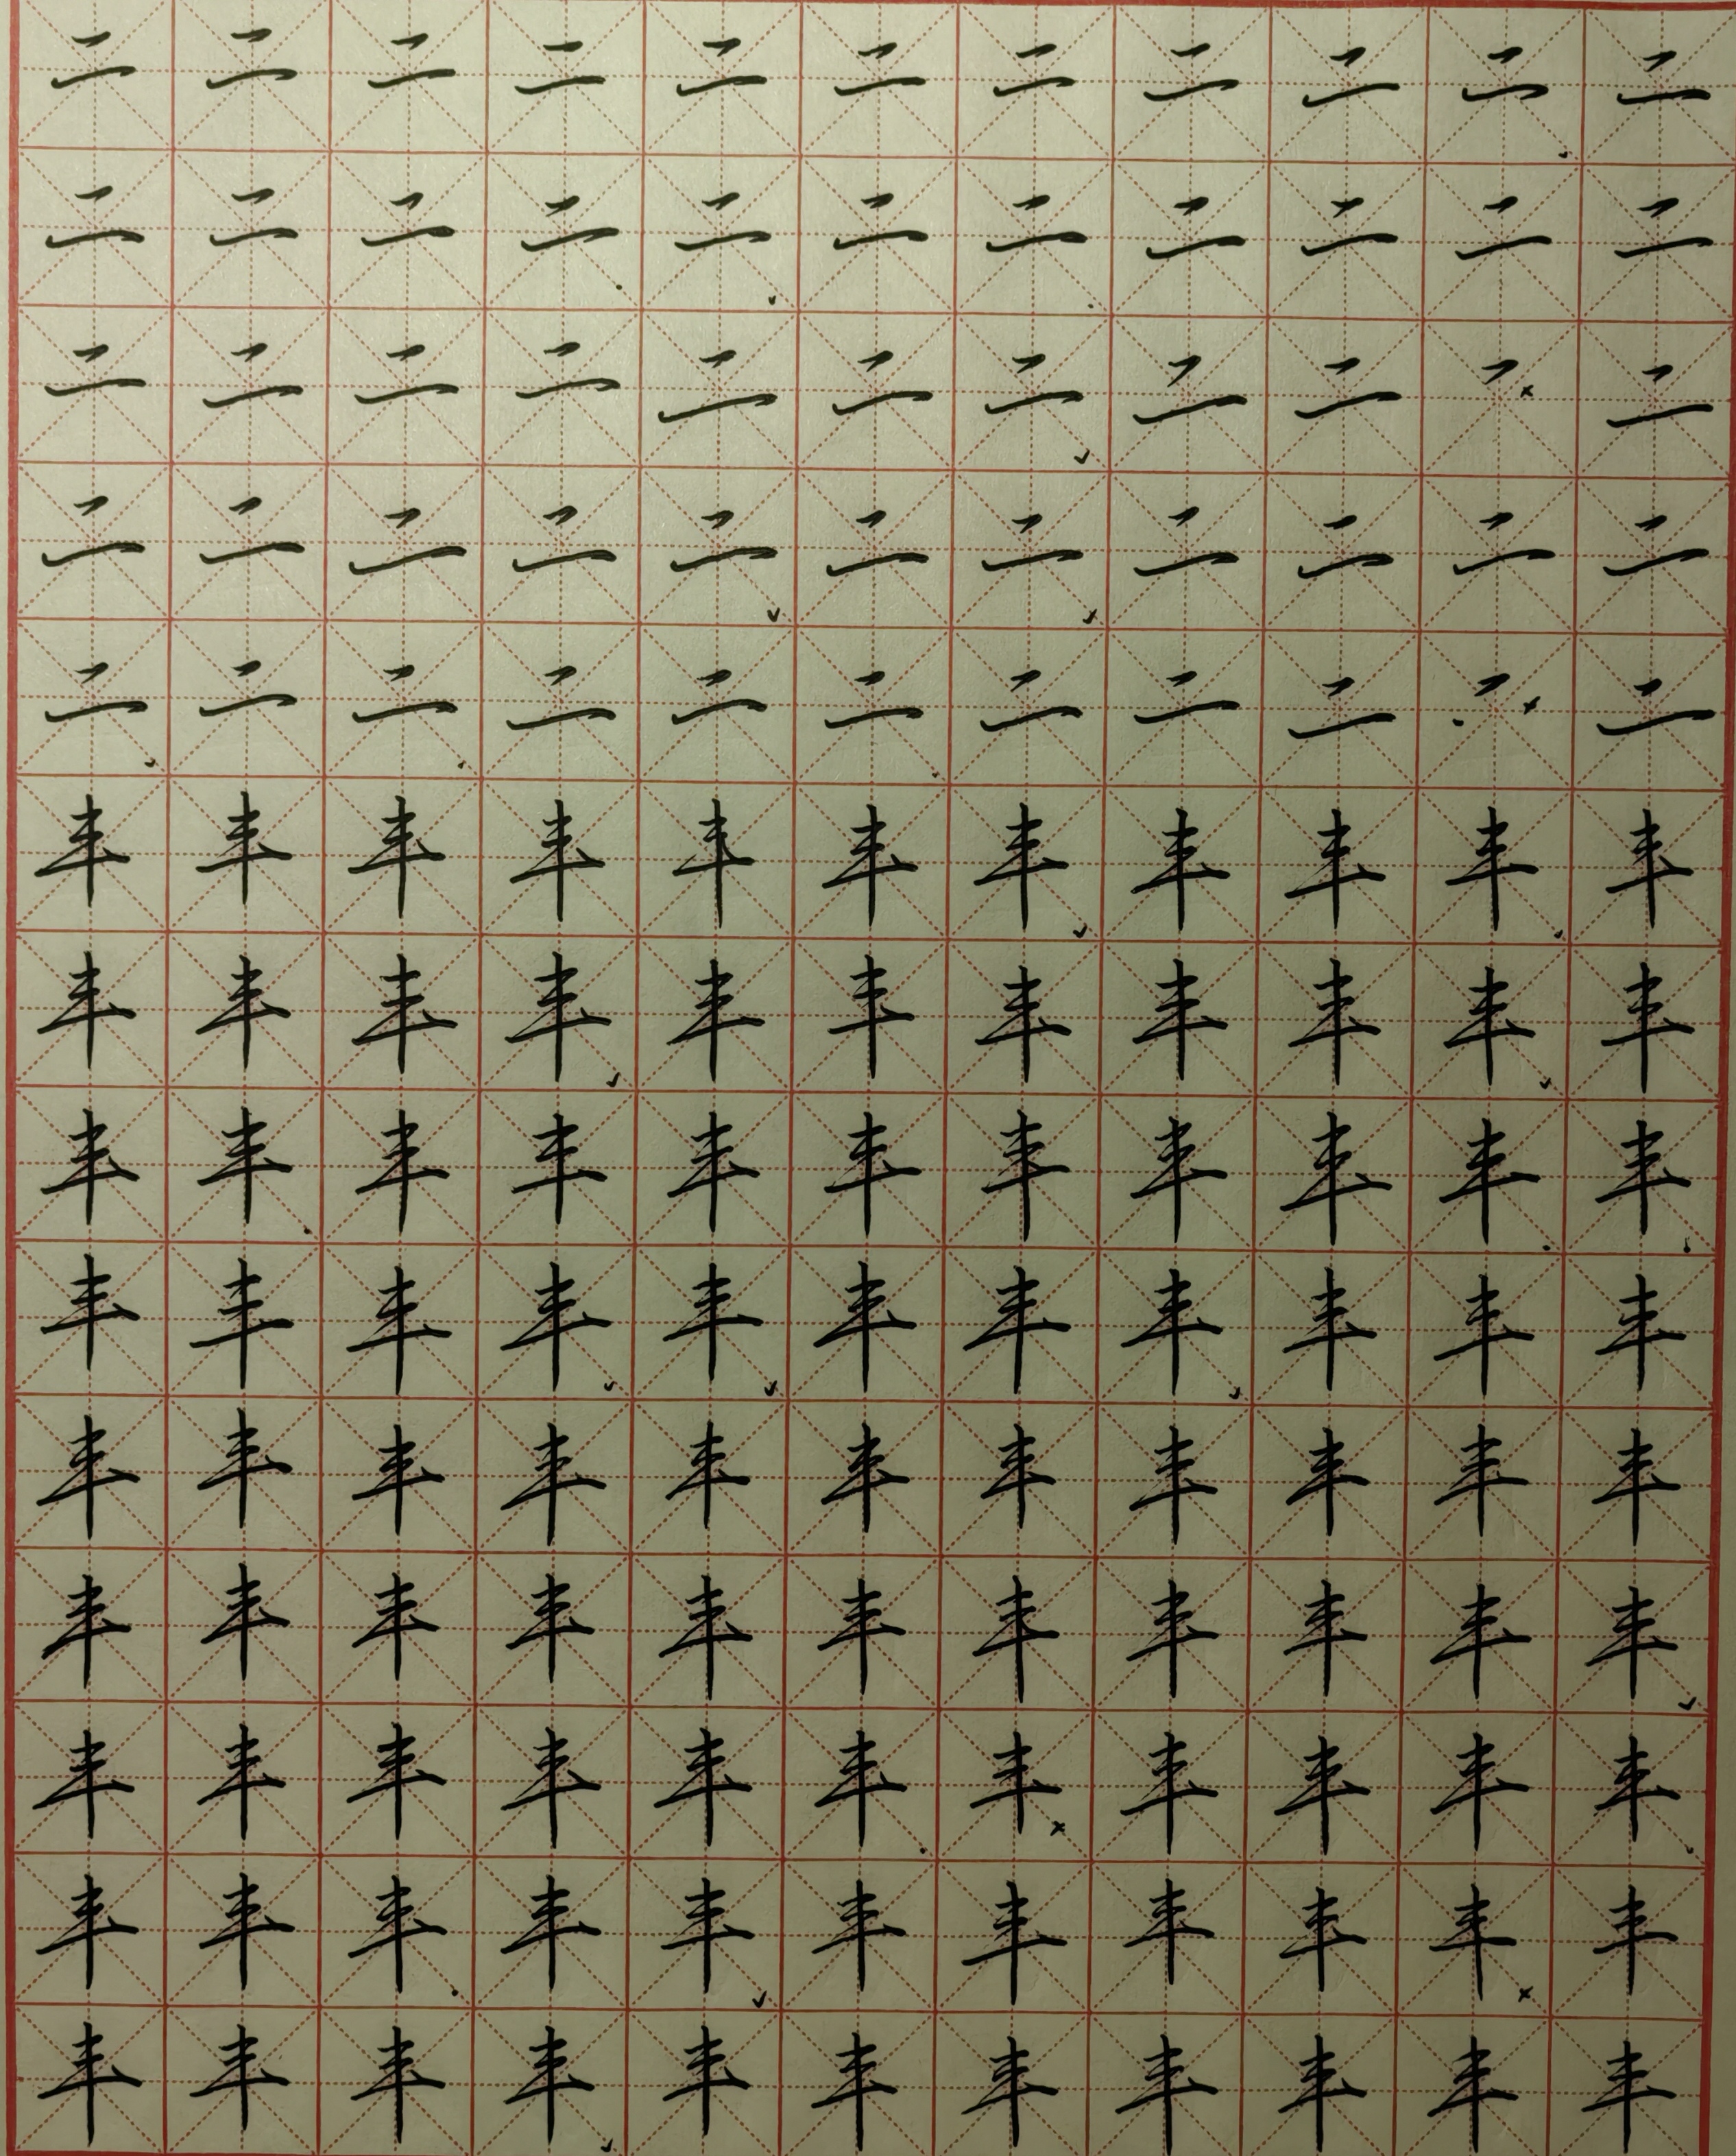 二二二二二二二二二二二
二二二二二二二二二二二
二二二二二二二二二二
二二二二二二二二二二二
二二二二二二二二二二
丰丰丰丰丰丰丰丰丰丰丰
丰丰丰丰丰丰丰丰丰丰丰
丰丰丰丰丰丰丰丰丰丰丰
丰丰丰丰丰丰丰丰丰丰丰
丰丰丰丰丰丰丰丰丰丰丰
丰丰丰丰丰丰丰丰丰丰丰
丰丰丰丰丰丰丰丰丰丰丰
丰丰丰丰丰丰丰丰丰丰丰
丰丰丰丰丰丰丰丰丰丰丰